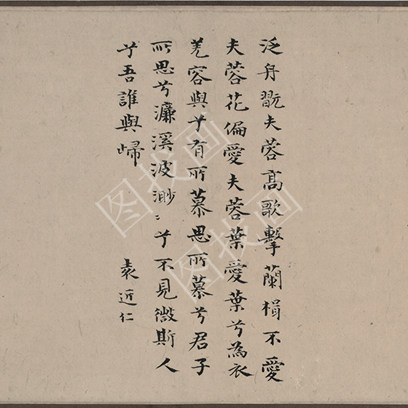 泛舟翫夫蓉高歌擊蘭楫不愛
夫蓉花偏愛夫蓉葉愛葉兮為衣
羌容與兮有所慕思所慕兮君子
所思兮濂溪波渺〻兮不見微斯人
兮吾誰與歸
袁近仁